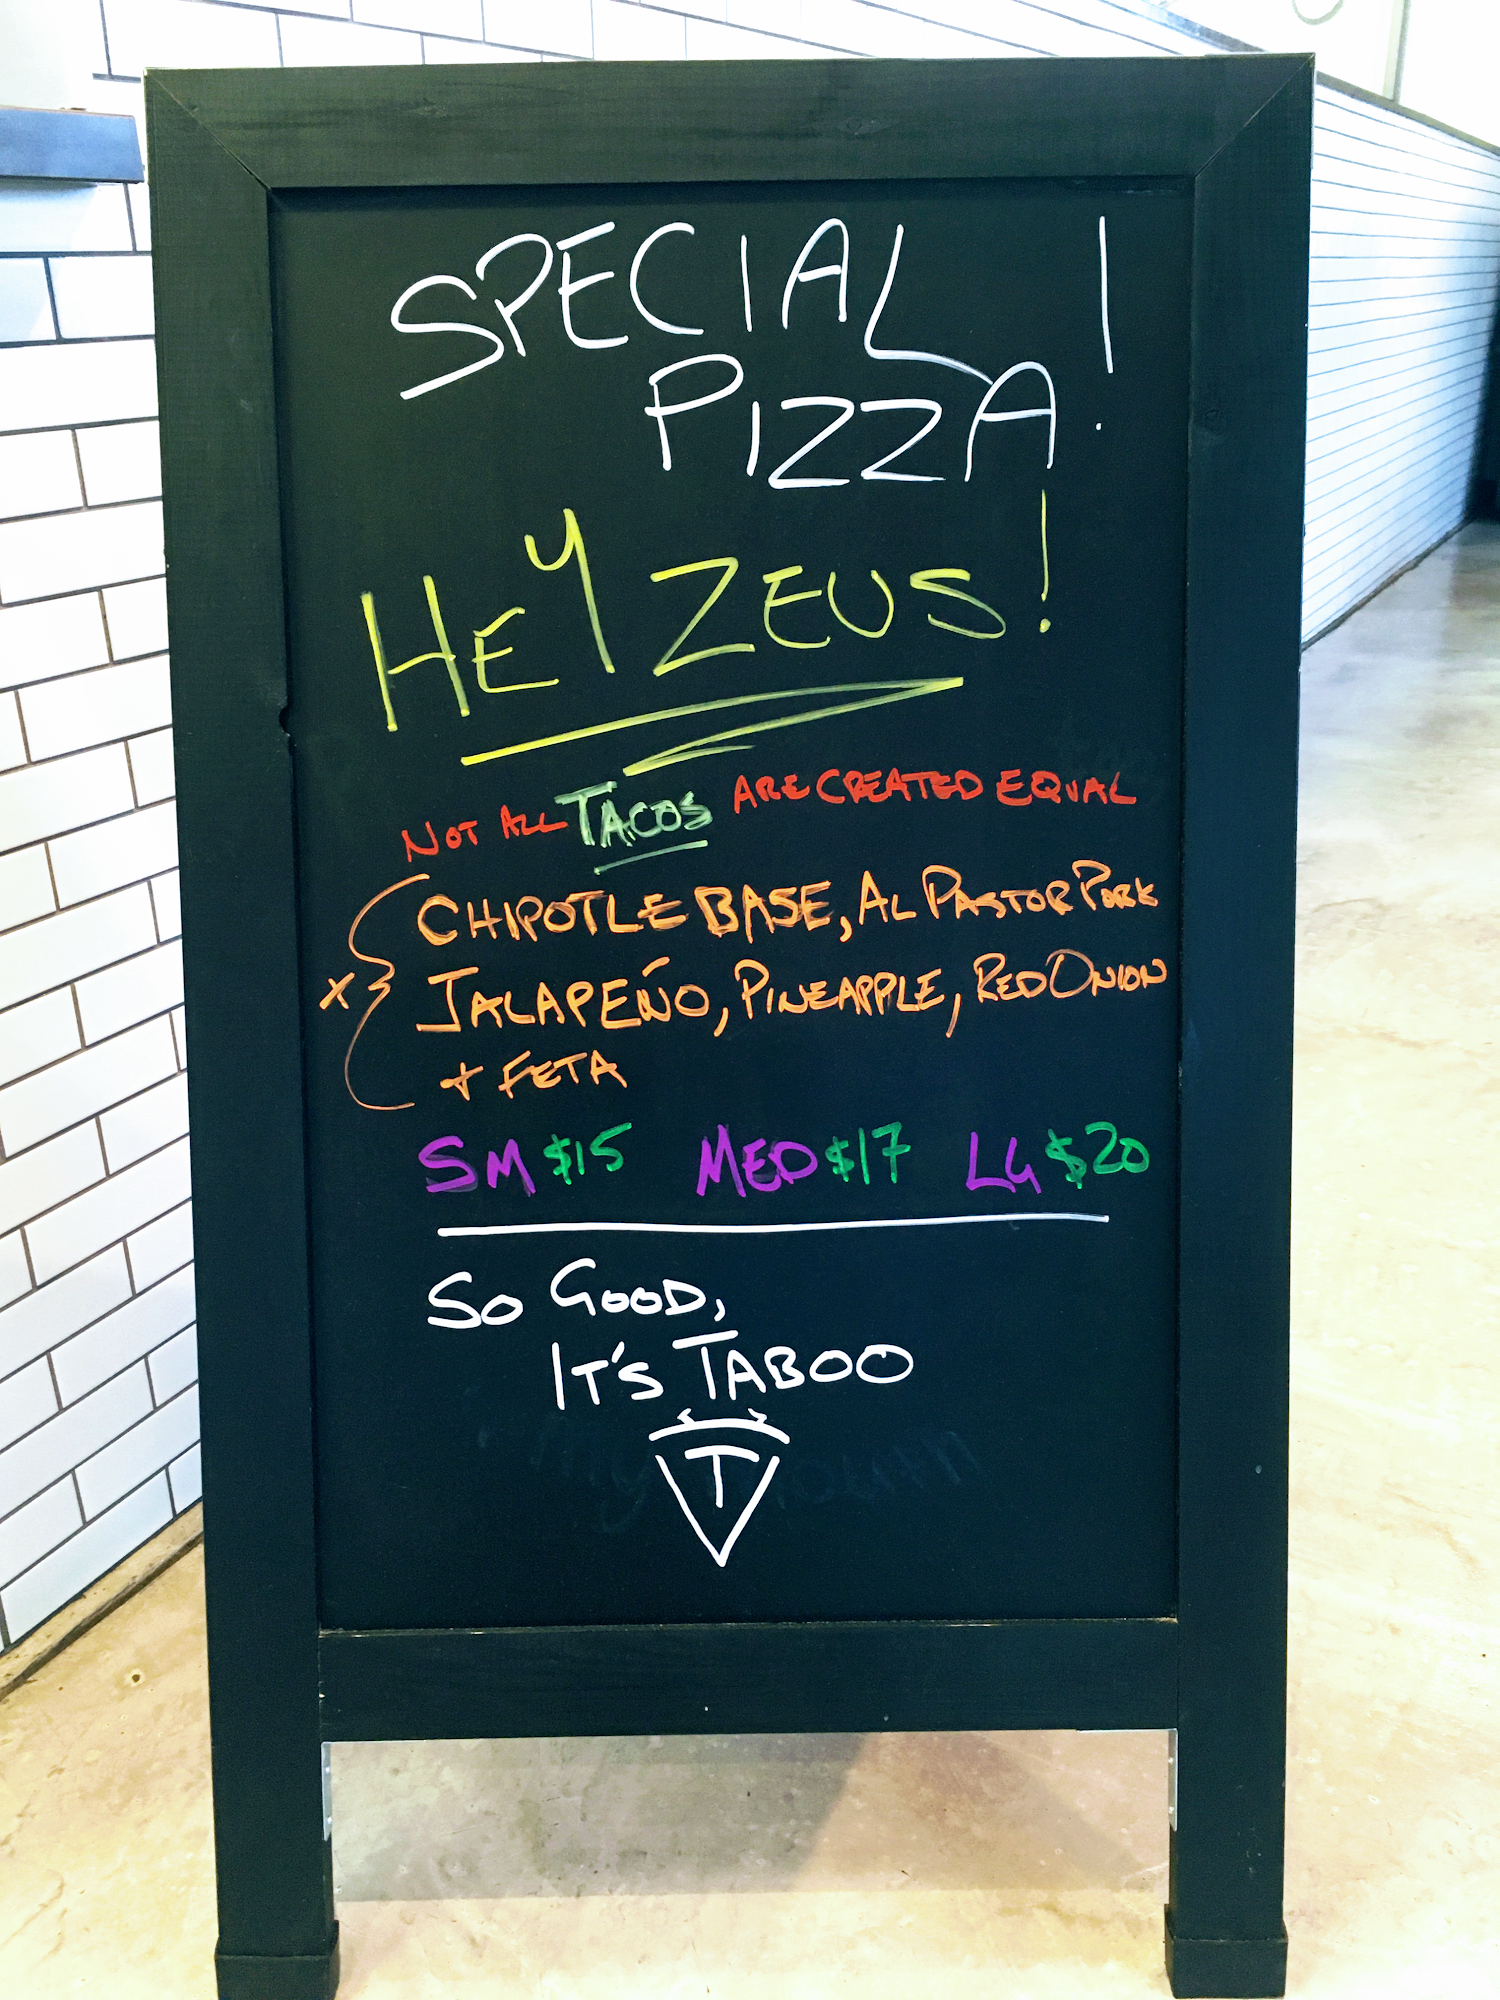 SPECIAL
PIZZA!
HEY ZEUS!
NOT ALL TACOS ARE CREATED EQUAL
CHIPOTLE BASE, AL PASTOR PORK
X JALAPEÑO, PINEAPPLE, RED ONION
+ FETA
SM $15 MED $17 LG $20
SO GOOD,
IT'S TABOO
T